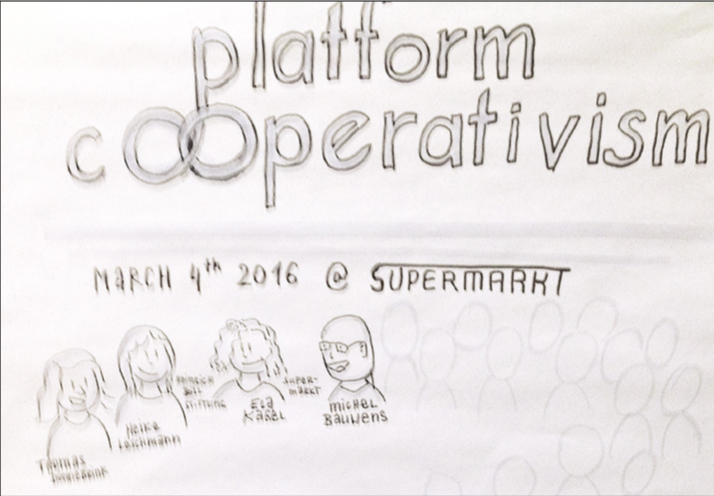 platform
cooperativism
MARCH 4th 2016 @ SUPERMARKT
Thomas
Heike
Leichmann
HEINRICH
BÖLL
STIFTUNG
Ela
Kagel
SUPER-
MARKT
michel
Bauwens